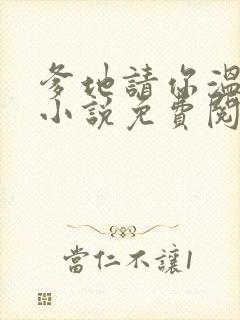 爹地請你溫
小說免費閱
當仁不讓1